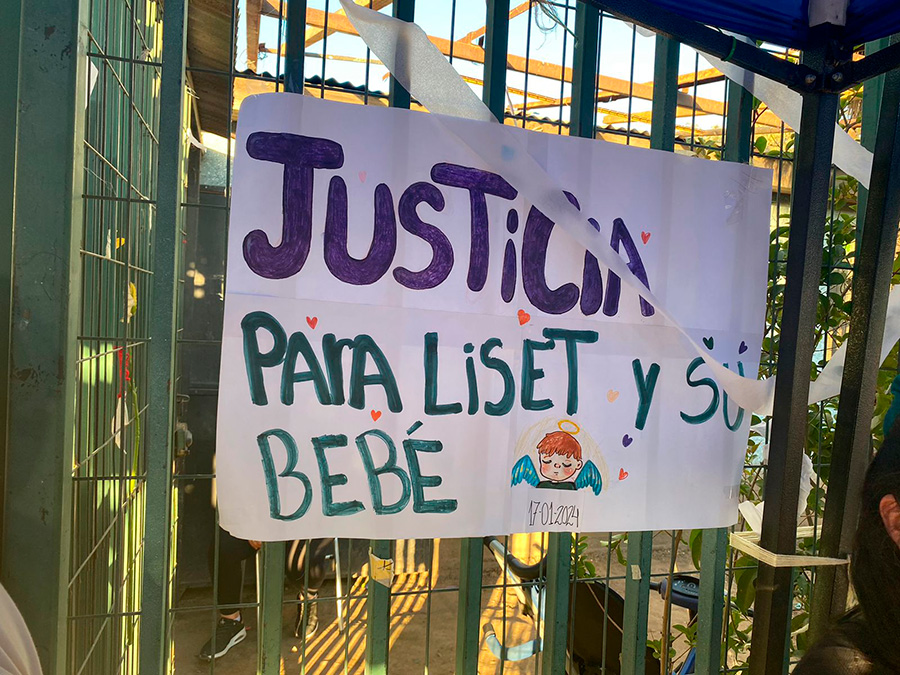 JUSTICIA
PARA LISET Y SU
BEBÉ
17-01-2024